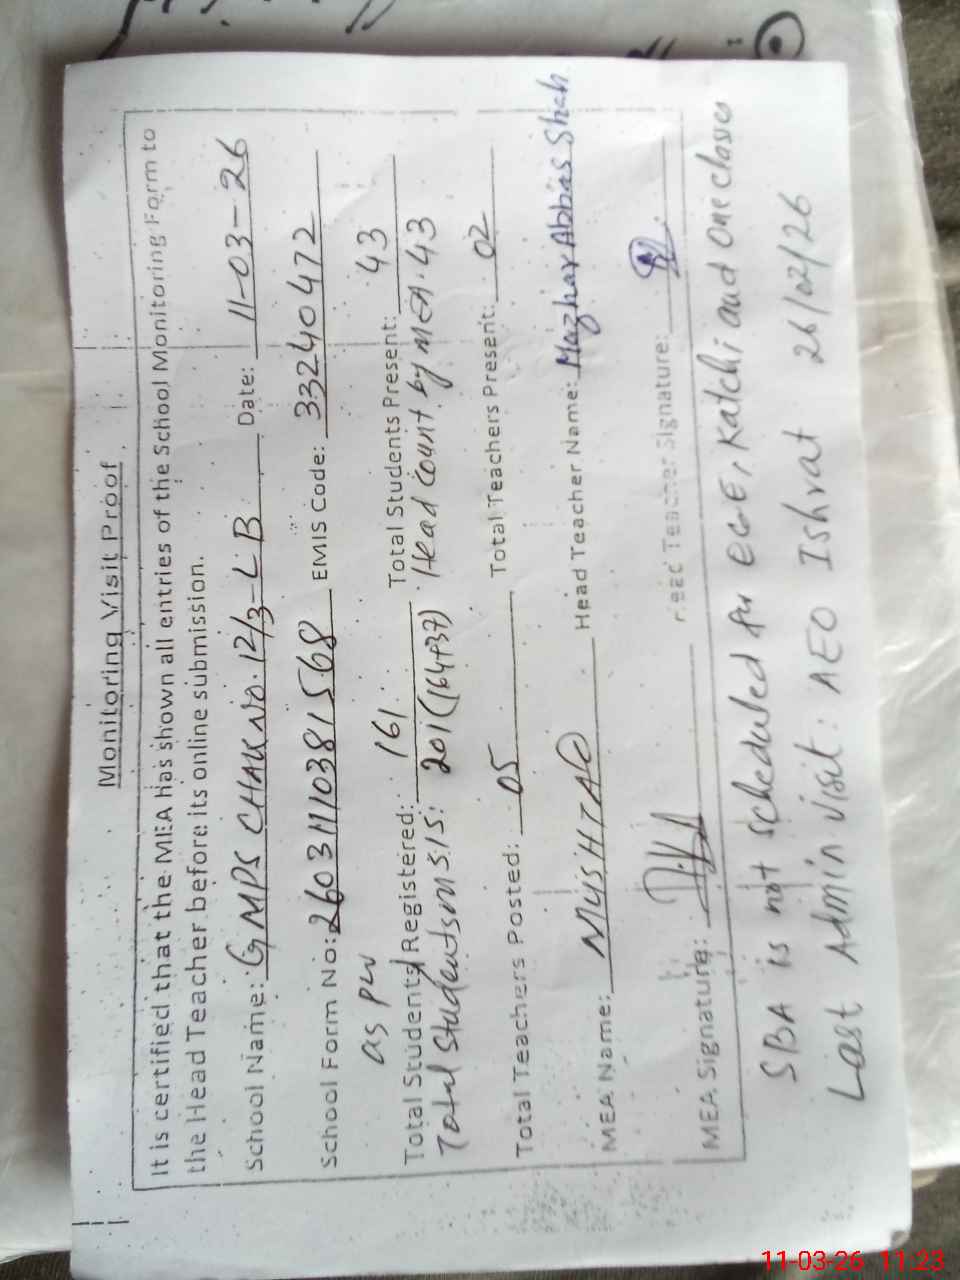 Monitoring Visit Proof
It is certified that the MEA has shown all entries of the School Monitoring Form to
the Head Teacher before its online submission.
School Name: GMPS CHAK NO. 12/3-L B Date: 11-03-26
School Form No: 2603111110381568 EMIS Code: 33240472
as per
Total Students Registered: 161 Total Students Present: 43
Total Students in SIS: 201 (164+37) Head Count by MEA. 43
Total Teachers Posted: 05 Total Teachers Present: 02
MEA Name: MUSHTAQ Head Teacher Name: Mazhar Abbas Shah
MEA Signature: Head Teacher Signature:
SBA is not scheduled for ECE, Katchi and One classes
Last Admin Visit: AEO Ishrat 26/02/26
11-03-26 11:23